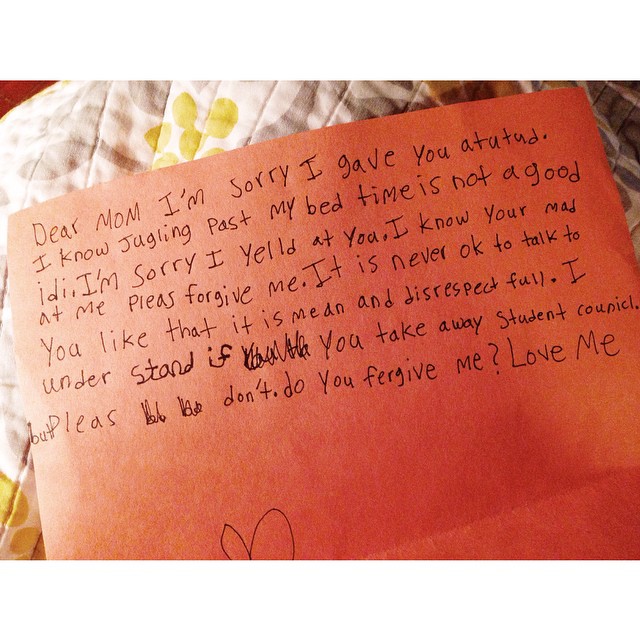 Dear MOM I'm Sorry I gave you atutud.
I know Jugling Past My bed time is not a good
idi. I'm Sorry I yelld at you. I know your mad
at me pleas forgive me. It is never ok to talk to
you like that it is mean and disrespect full. I
under stand if you take away Student counicl.
but Pleas don't. do you fergive me? Love Me